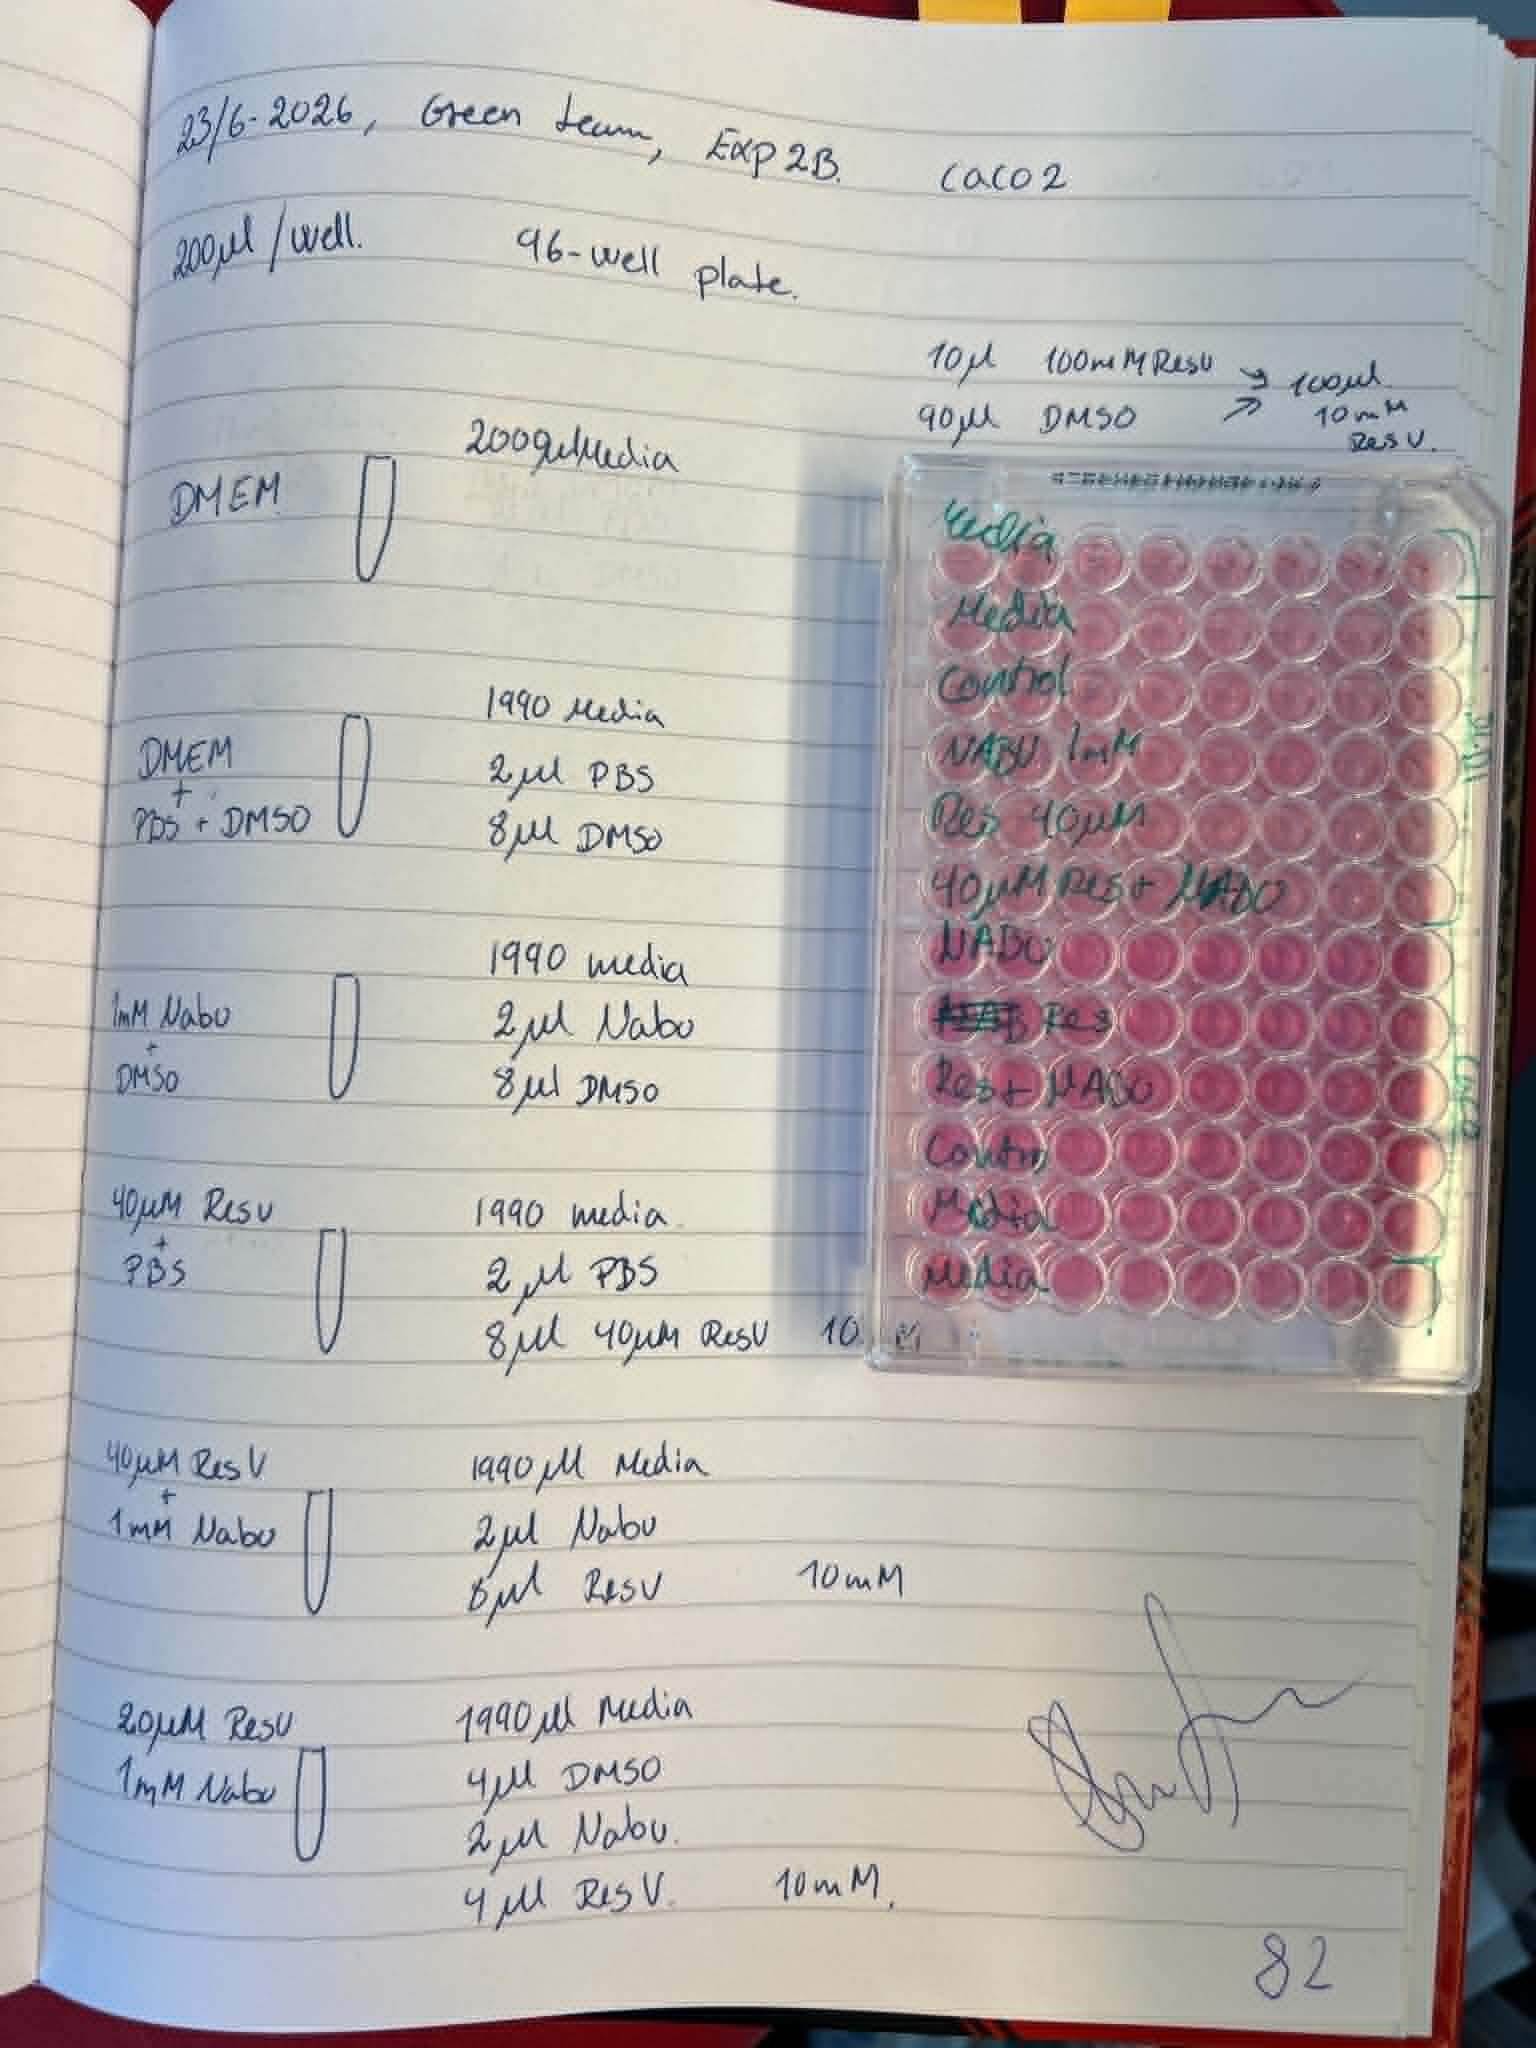 23/6-2026, Green team, Exp 2B. CaCO2
200µl/well. 96-well plate.
10µl 100mM ResV → 100µl
90µl DMSO ↗ 10mM
ResV.
DMEM
Media
1990 Media
DMEM
+
PBS + DMSO
2µl PBS
8µl DMSO
1990 media
1mM Nabu
+
DMSO
2µl Nabu
8µl DMSO
40µM ResV
+
PBS
1990 media
2µl PBS
8µl 40µM ResV 10 M
40µM ResV
+
1mM Nabu
1990µl Media
2µl Nabu
8µl ResV 10mM
20µM ResV
1mM Nabu
1990µl Media
4µl DMSO
2µl Nabu.
4µl ResV. 10mM.
82
Media
Media
Control
NABU 1mM
Res 40µM
40µM Res + NABU
NABU
Res
Res + NABU
Control
Media
Media